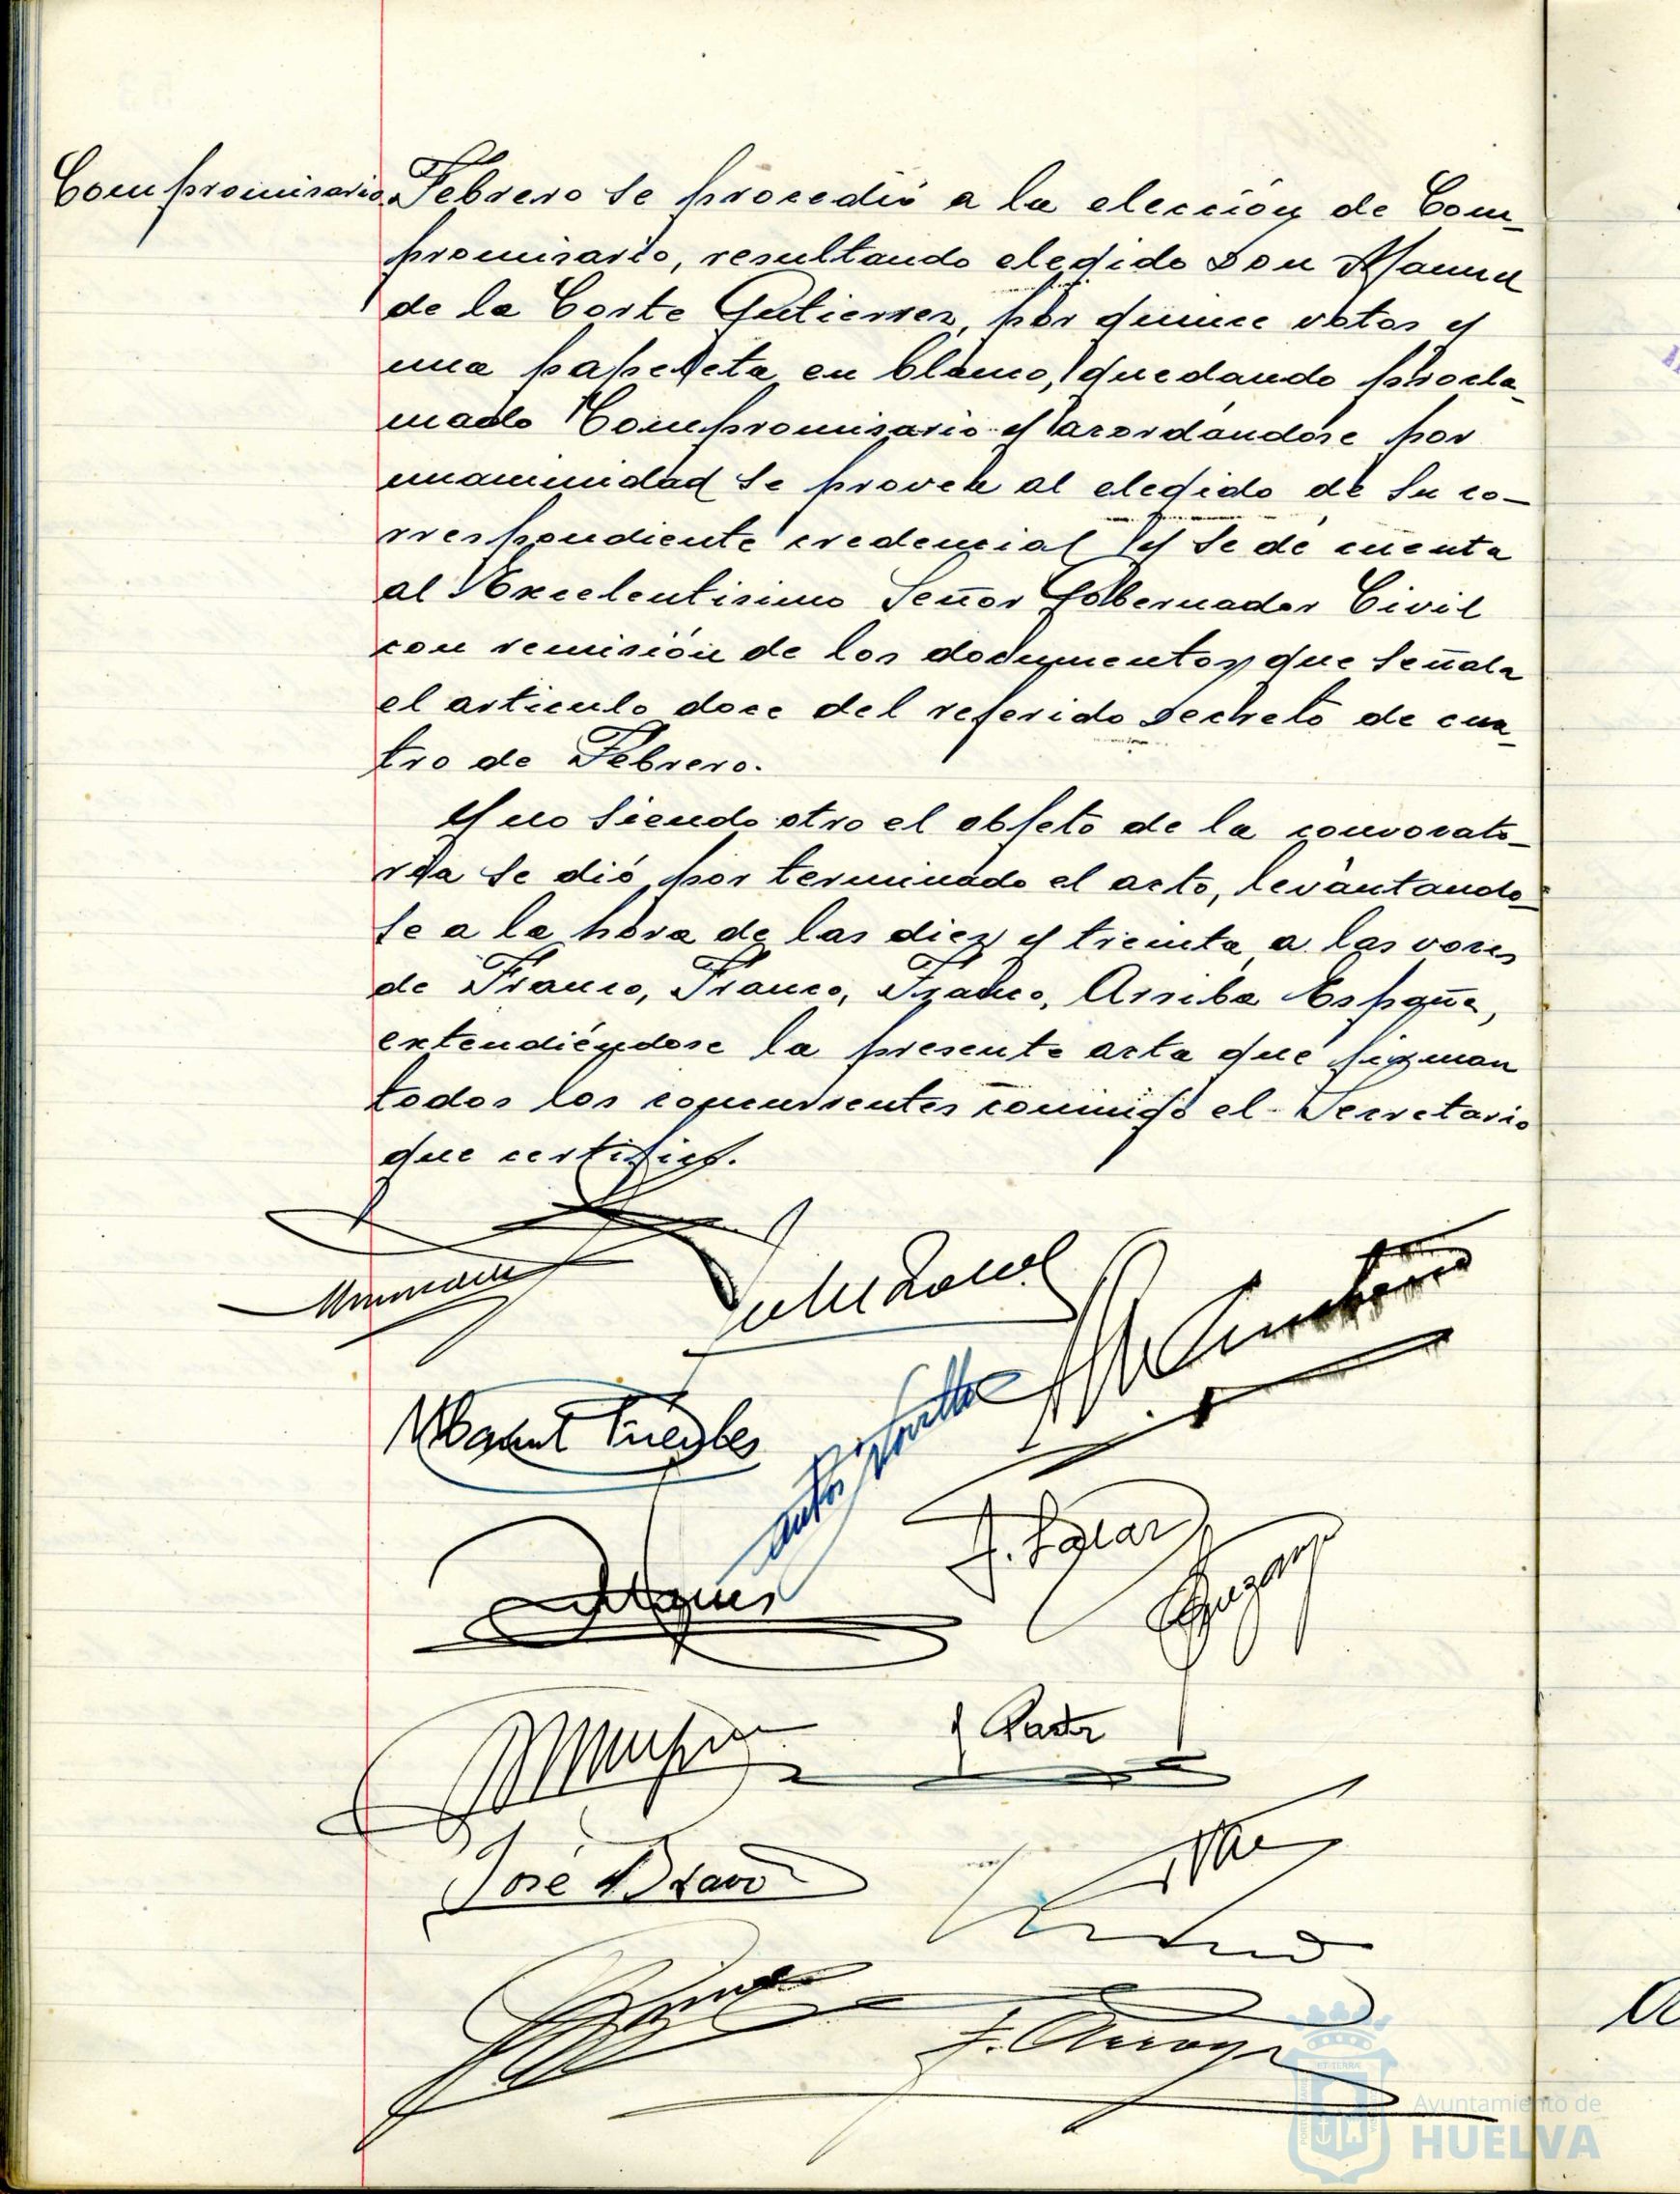 Compromisario
Febrero se procedió a la elección de Com-
promisario, resultando elegido Don Manuel
de la Corte Gutierrez, por quince votos y
una papeleta en blanco, quedando procla-
mado Compromisario y acordándose por
unanimidad se provea al elegido de su co-
rrespondiente credencial y se dé cuenta
al Excelentisimo Señor Gobernador Civil
con remisión de los documentos que señala
el articulo doce del referido Decreto de cua-
tro de Febrero.
Y no siendo otro el objeto de la convocato-
ria se dió por terminado el acto, levantando-
se a la hora de las diez y treinta a las voces
de Franco, Franco, Franco, Arriba España,
extendiéndose la presente acta que firman
todos los concurrentes conmigo el Secretario
que certifico.
José Bravo
Ayuntamiento de
HUELVA